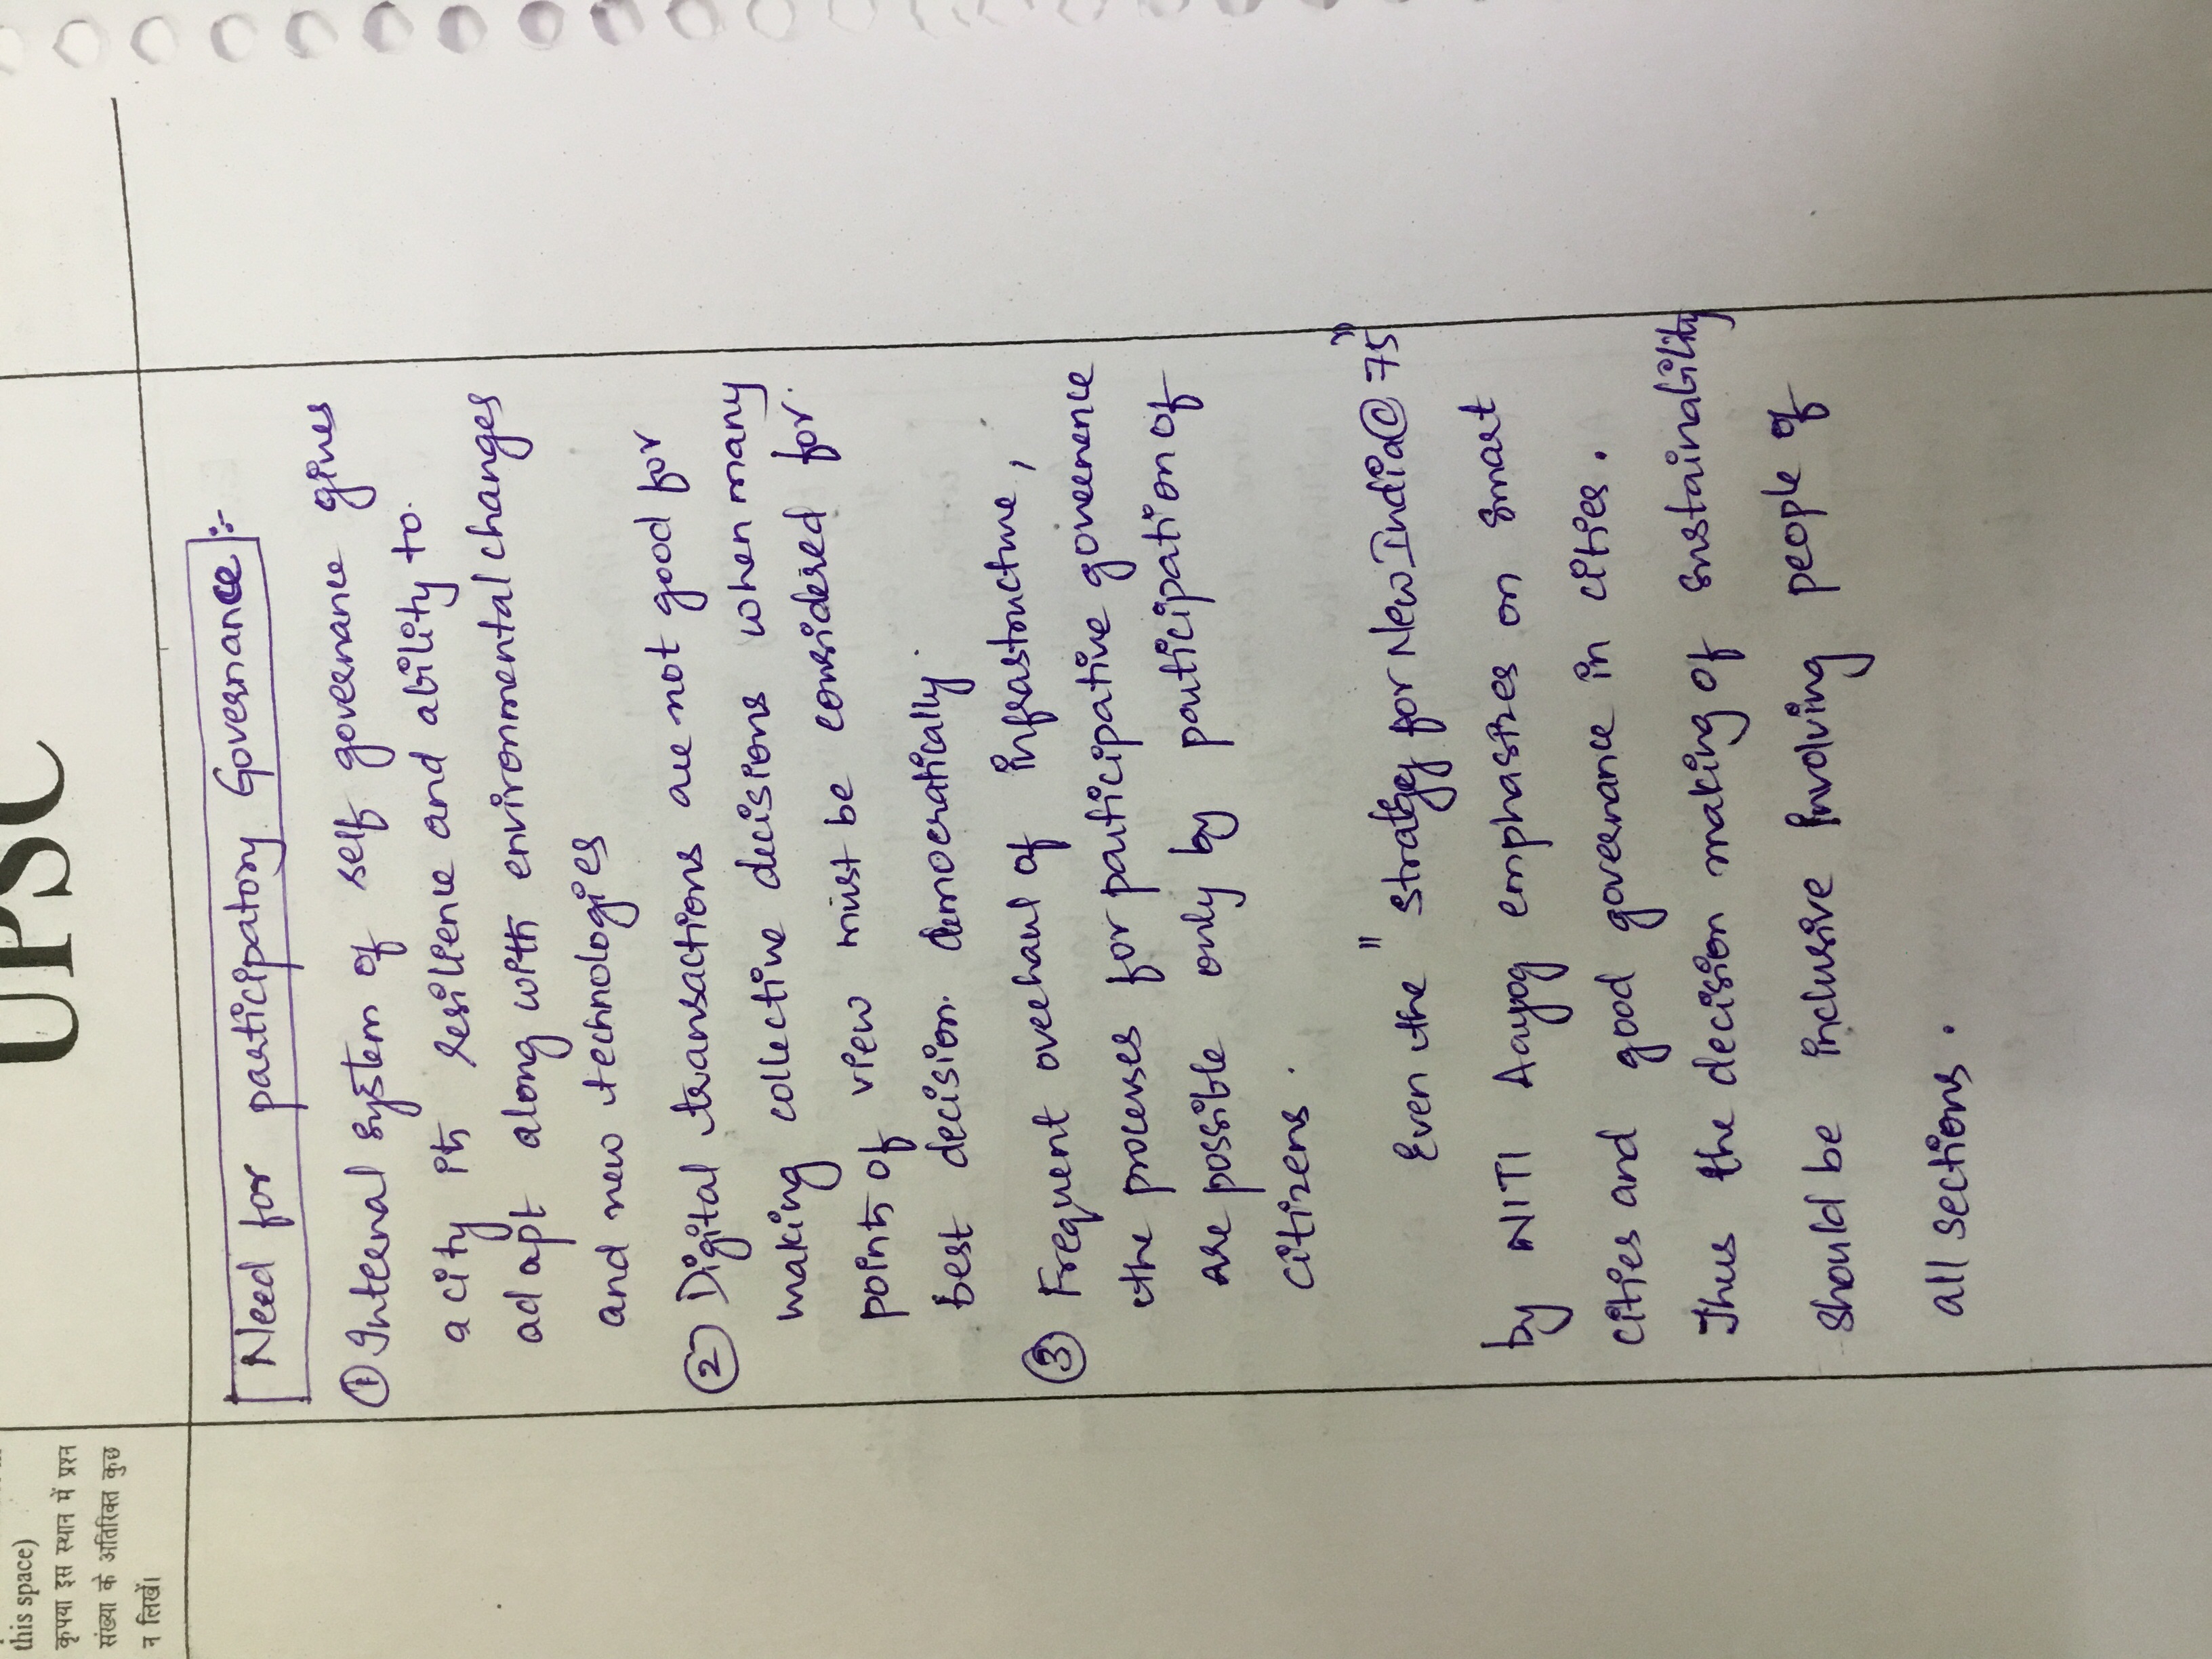 UPSC
this space)
कृपया इस स्थान में प्रश्न
संख्या के अतिरिक्त कुछ
न लिखें।
Need for participatory Governance:-
① Internal system of self governance gives
a city its resilience and ability to
adapt along with environmental changes
and new technologies
② Digital transactions are not good for
making collective decisions when many
points of view must be considered for
best decision democratically.
③ Frequent overhaul of infrastructure,
the processes for participative goverence
are possible only by participation of
citizens.
Even the "Strategy for New India@75"
by NITI Aayog emphasizes on smart
cities and good governance in cities.
Thus the decision making of sustainability
should be inclusive involving people of
all sections.